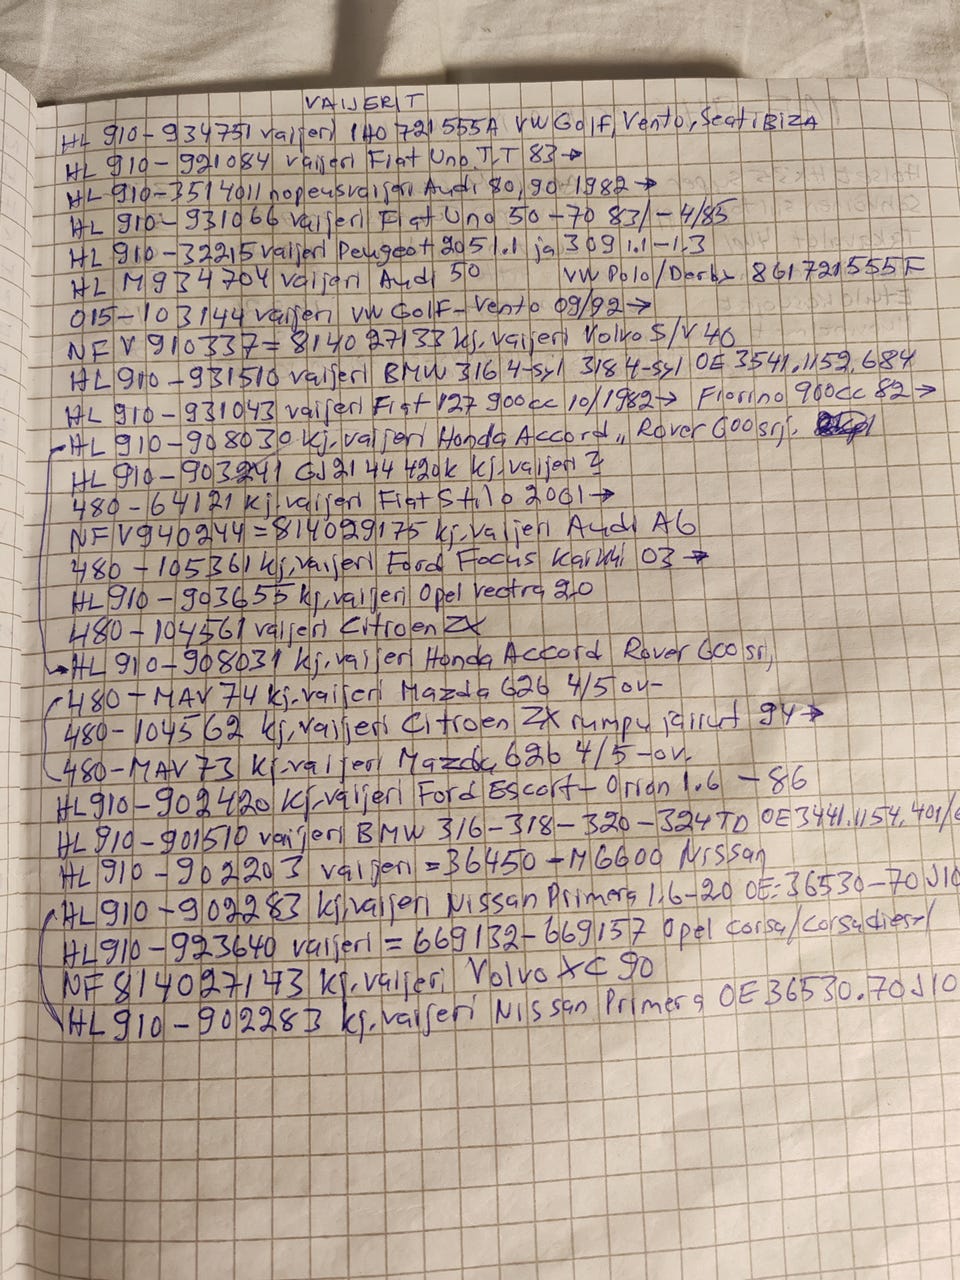 VAIJERIT
HL 910-934751 vaijeri 1H0 721 555A VW Golf, Vento, Seat IBIZA
HL 910-921084 vaijeri Fiat Uno T,T 83→
HL 910-3514011 nopeusvaijeri Audi 80,90 1982→
HL 910-931066 vaijeri Fiat Uno 50-70 83/-4/85
HL 910-32215 vaijeri Peugeot 205 1.1 ja 309 1.1-1.3
HL M934704 vaijeri Audi 50 VW Polo/Derby 861721555F
015-103144 vaijeri VW Golf-Vento 09/92→
NF V910337=814027133 kj.vaijeri Volvo S/V40
HL 910-931510 vaijeri BMW 316 4-syl 318 4-syl OE 3541.1152.684
HL 910-931043 vaijeri Fiat 127 900cc 10/1982→ Fiorino 900cc 82→
HL 910-908030 kj.vaijeri Honda Accord,, Rover 600srj.
HL 910-903241 GJ21 44 420k kj.vaijeri
480-64121 kj.vaijeri Fiat Stilo 2001→
NF V940244=814029175 kj.vaijeri Audi A6
480-105361 kj.vaijeri Ford Focus kaikki 03→
HL 910-903655 kj.vaijeri Opel vectra 2.0
480-104561 vaijeri Citroen ZX
HL 910-908031 kj.vaijeri Honda Accord Rover 600srj
480-MAV74 kj.vaijeri Mazda 626 4/5 ov-
480-104562 kj.vaijeri Citroen ZX rumpu jarrut 94→
480-MAV73 kj.vaijeri Mazda 626 4/5-ov.
HL 910-902420 kj.vaijeri Ford Escort-Orion 1.6 -86
HL 910-901510 vaijeri BMW 316-318-320-324TD OE3441.1154.401/
HL 910-902203 vaijeri=36450-M6600 Nissan
HL 910-902283 kj.vaijeri Nissan Primera 1.6-20 OE:36530-70J10
HL 910-923640 vaijeri=669132-669157 Opel corsa/corsadiesel
NF 814027143 kj.vaijeri Volvo XC90
HL 910-902283 kj.vaijeri Nissan Primera OE36530.70J10